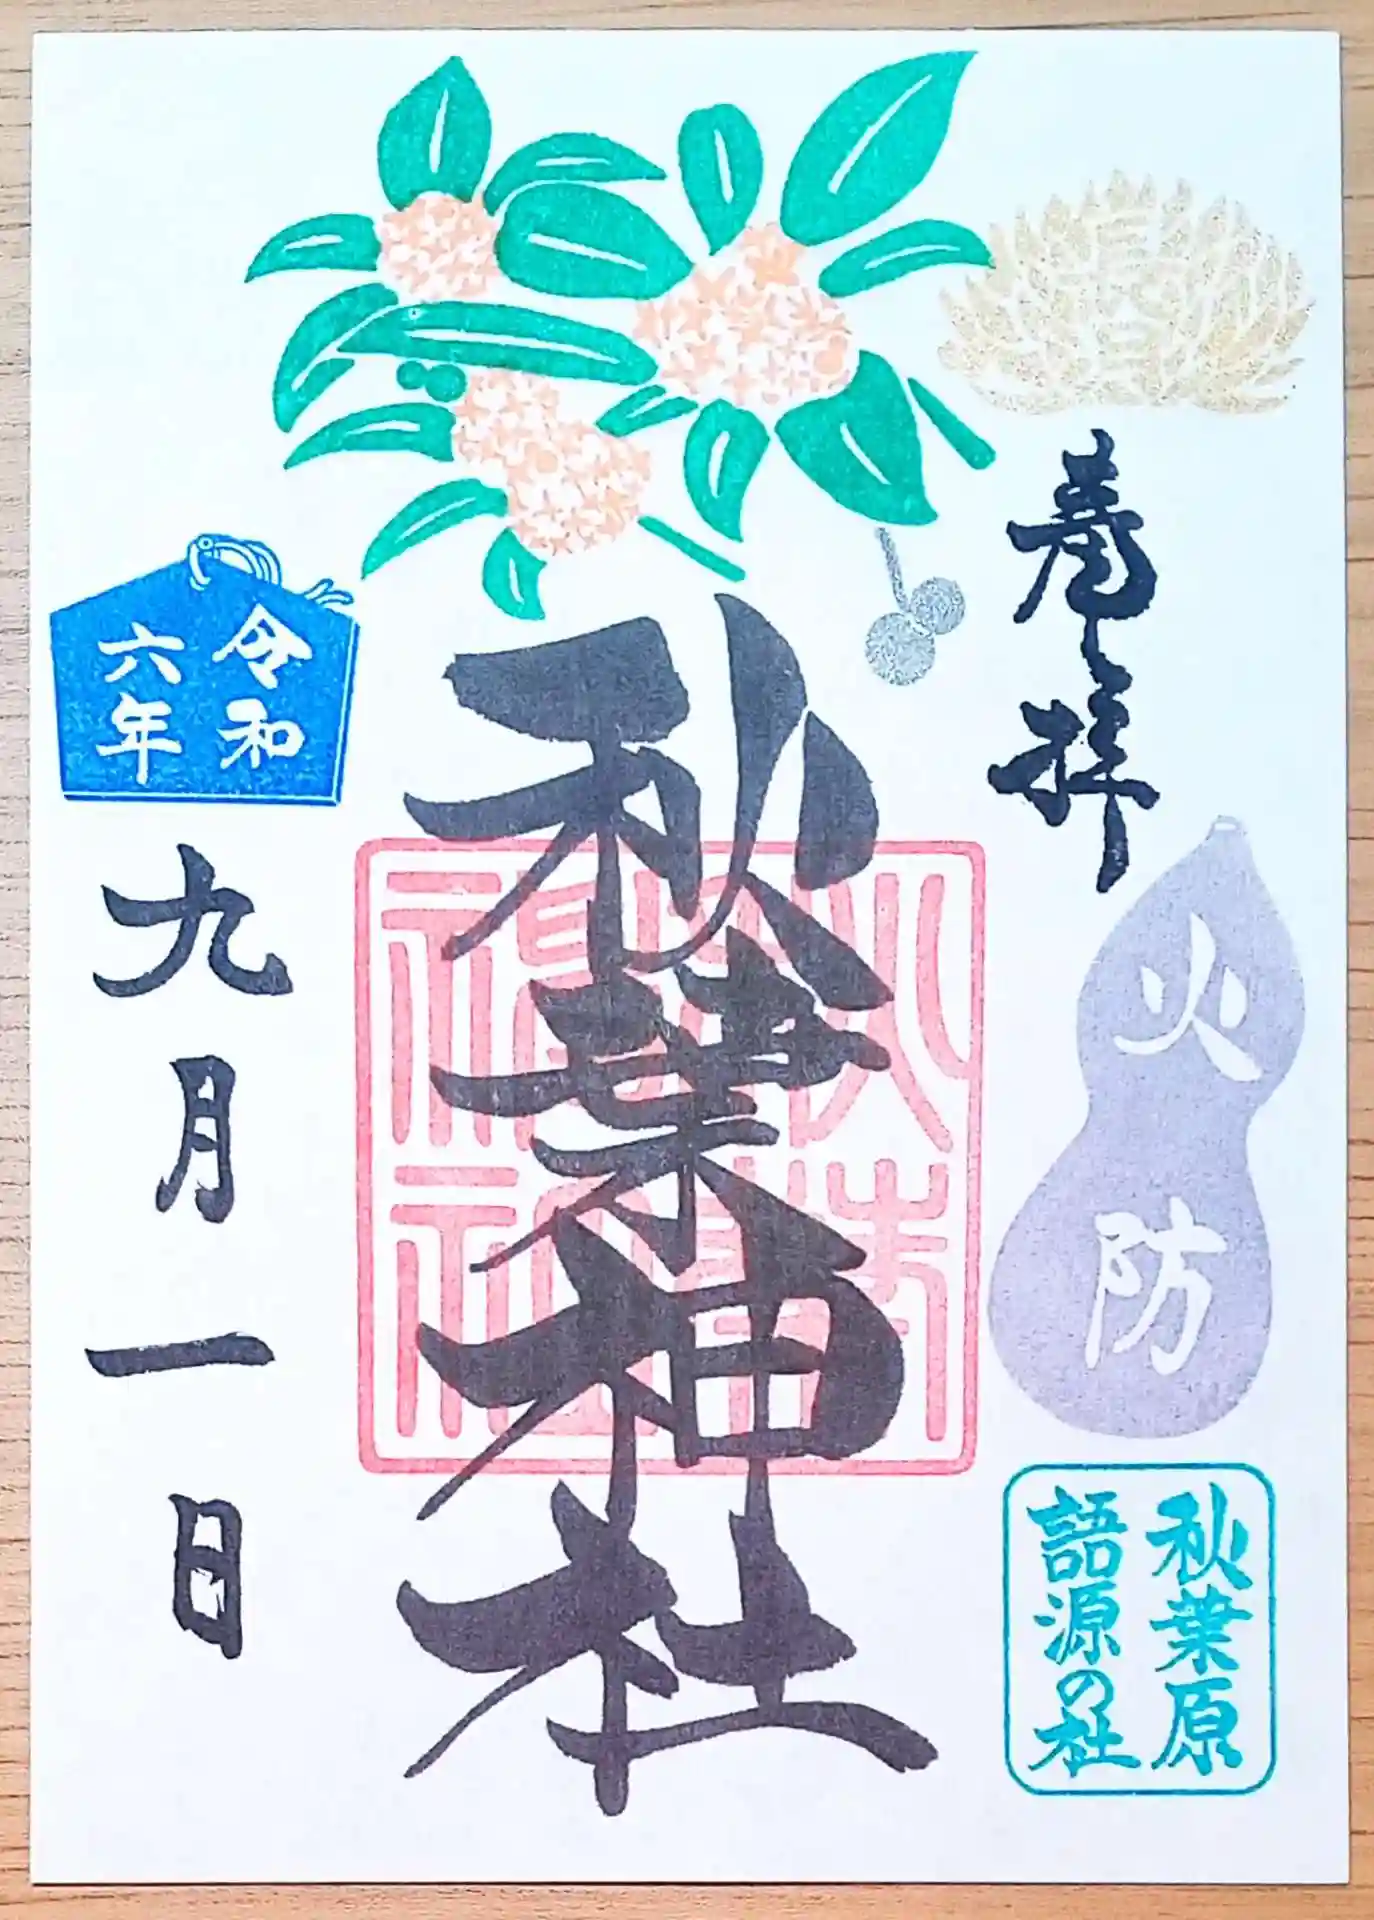 奉拝
火防
秋葉原
語源の社
秋葉神社
秋葉
神社
令和
六年
九月一日